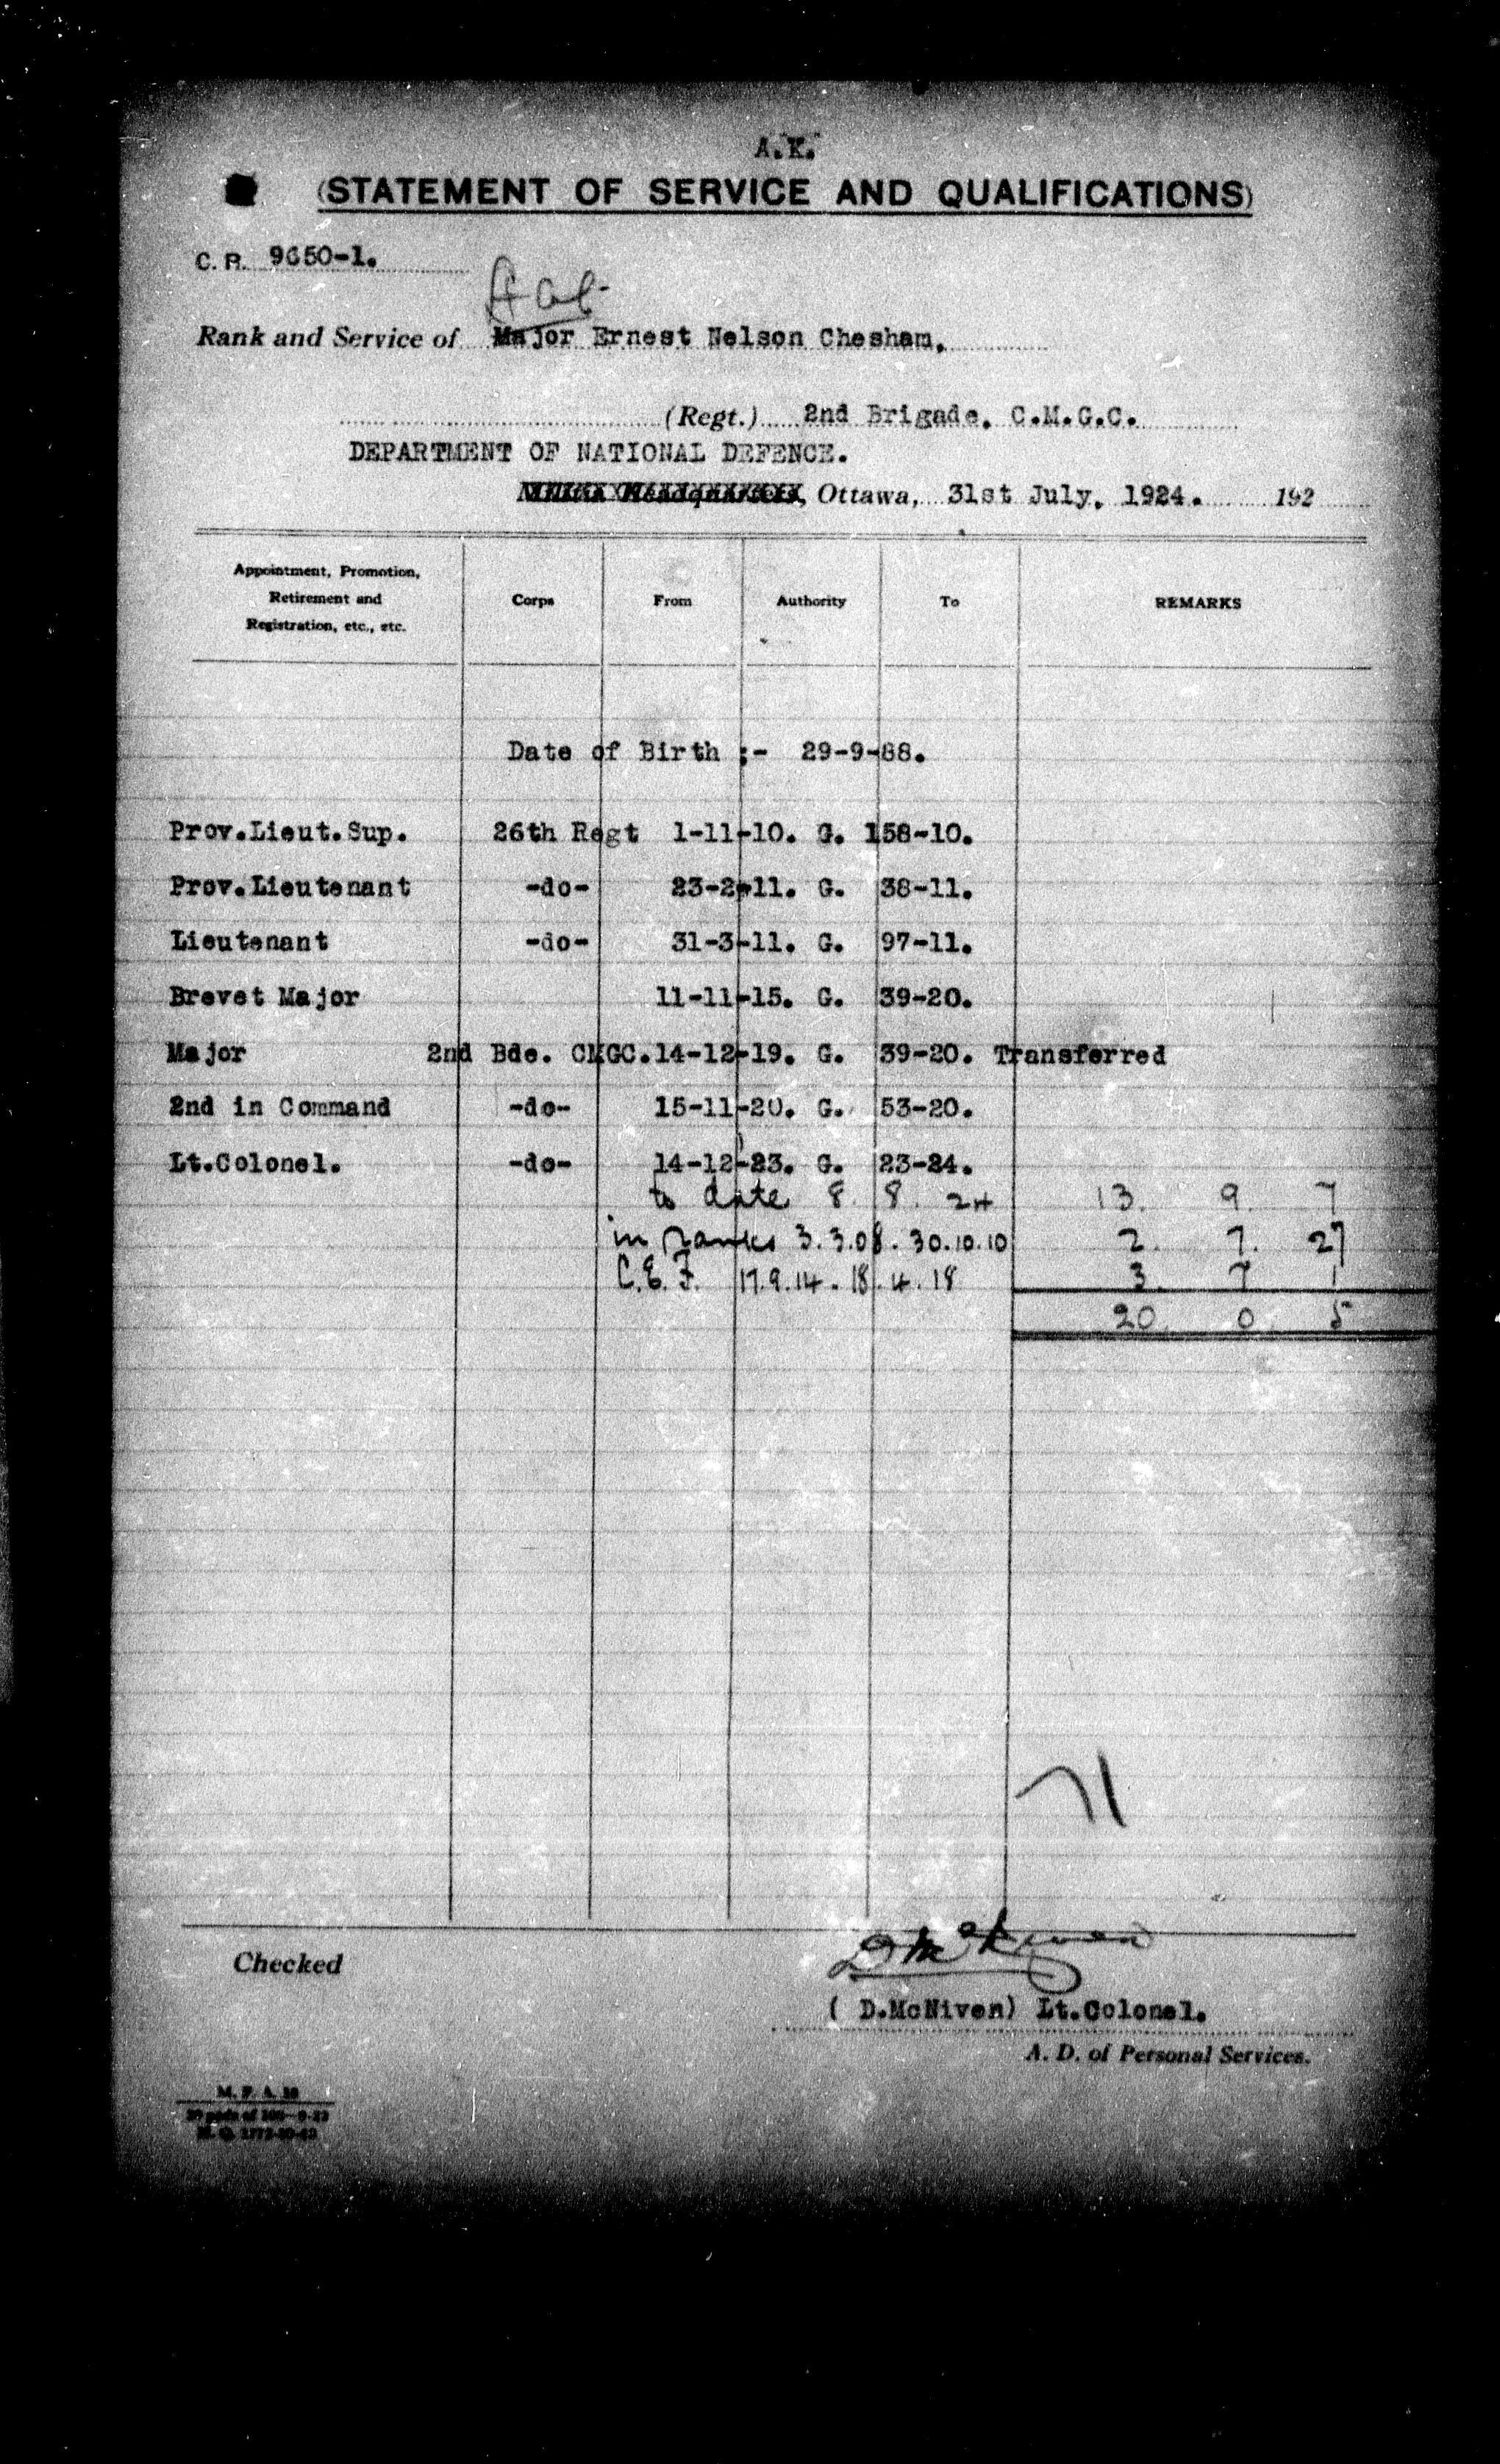 A.K.
(STATEMENT OF SERVICE AND QUALIFICATIONS)
C. R. 9650-1.
Rank and Service of Major Ernest Nelson Chesham.
(Regt.) 2nd Brigade. C.M.G.C.
DEPARTMENT OF NATIONAL DEFENCE.
Militia Headquarters, Ottawa, 31st July, 1924. 192
Appointment, Promotion, Retirement and Registration, etc., etc. Corps From Authority To REMARKS
Date of Birth :- 29-9-88.
Prov.Lieut.Sup. 26th Regt 1-11-10. G. 158-10.
Prov.Lieutenant -do- 23-2-11. G. 38-11.
Lieutenant -do- 31-3-11. G. 97-11.
Brevet Major 11-11-15. G. 39-20.
Major 2nd Bde. CMGC. 14-12-19. G. 39-20. Transferred
2nd in Command -do- 15-11-20. G. 53-20.
Lt.Colonel. -do- 14-12-23. G. 23-24.
to date 8. 8. 24 13. 9. 7
in ranks 3.3.08. 30.10.10 2. 7. 27
C.E.F. 17.9.14. 18.4.18 3. 7 1
20. 0. 5
71
Checked
D McNiven
( D.McNiven) Lt.Colonel.
A. D. of Personal Services.